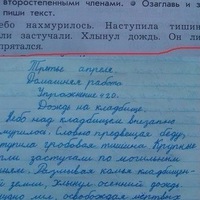 второстепенными членами. Озаглавь и
пиши текст.
ебо нахмурилось. Наступила тишин
ли застучали. Хлынул дождь. Он ли
прятался.
Третье апреля.
Домашняя работа
Упражнение 420.
Дождь на кладбище.
Небо над кладбищем внезапно
мурилось. Словно предвещая беду,
тупила гробовая тишина. Крупные
пли застучали по могильным
земли, хлынул осенний дождь